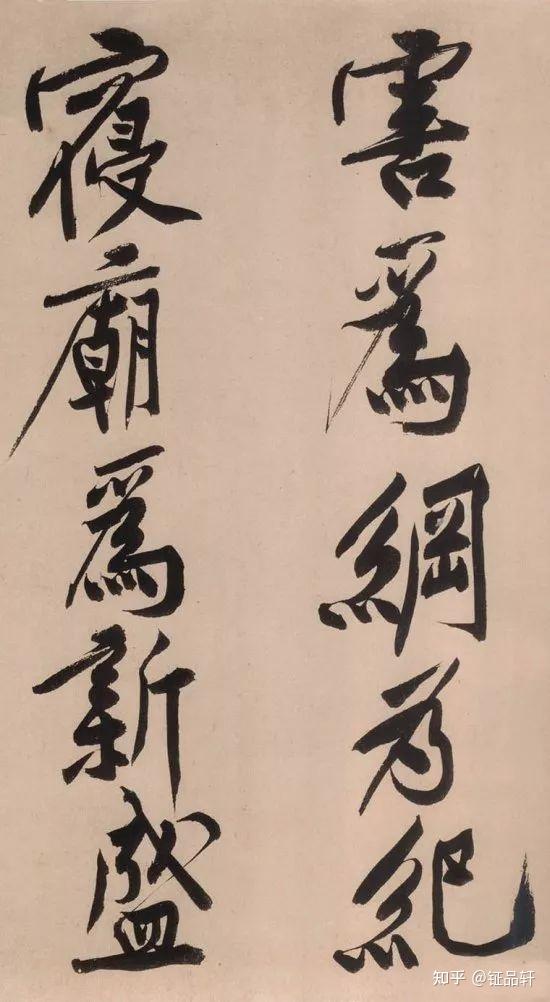 害爲綱為紀
寑廟爲新盛
知乎 @钲品轩